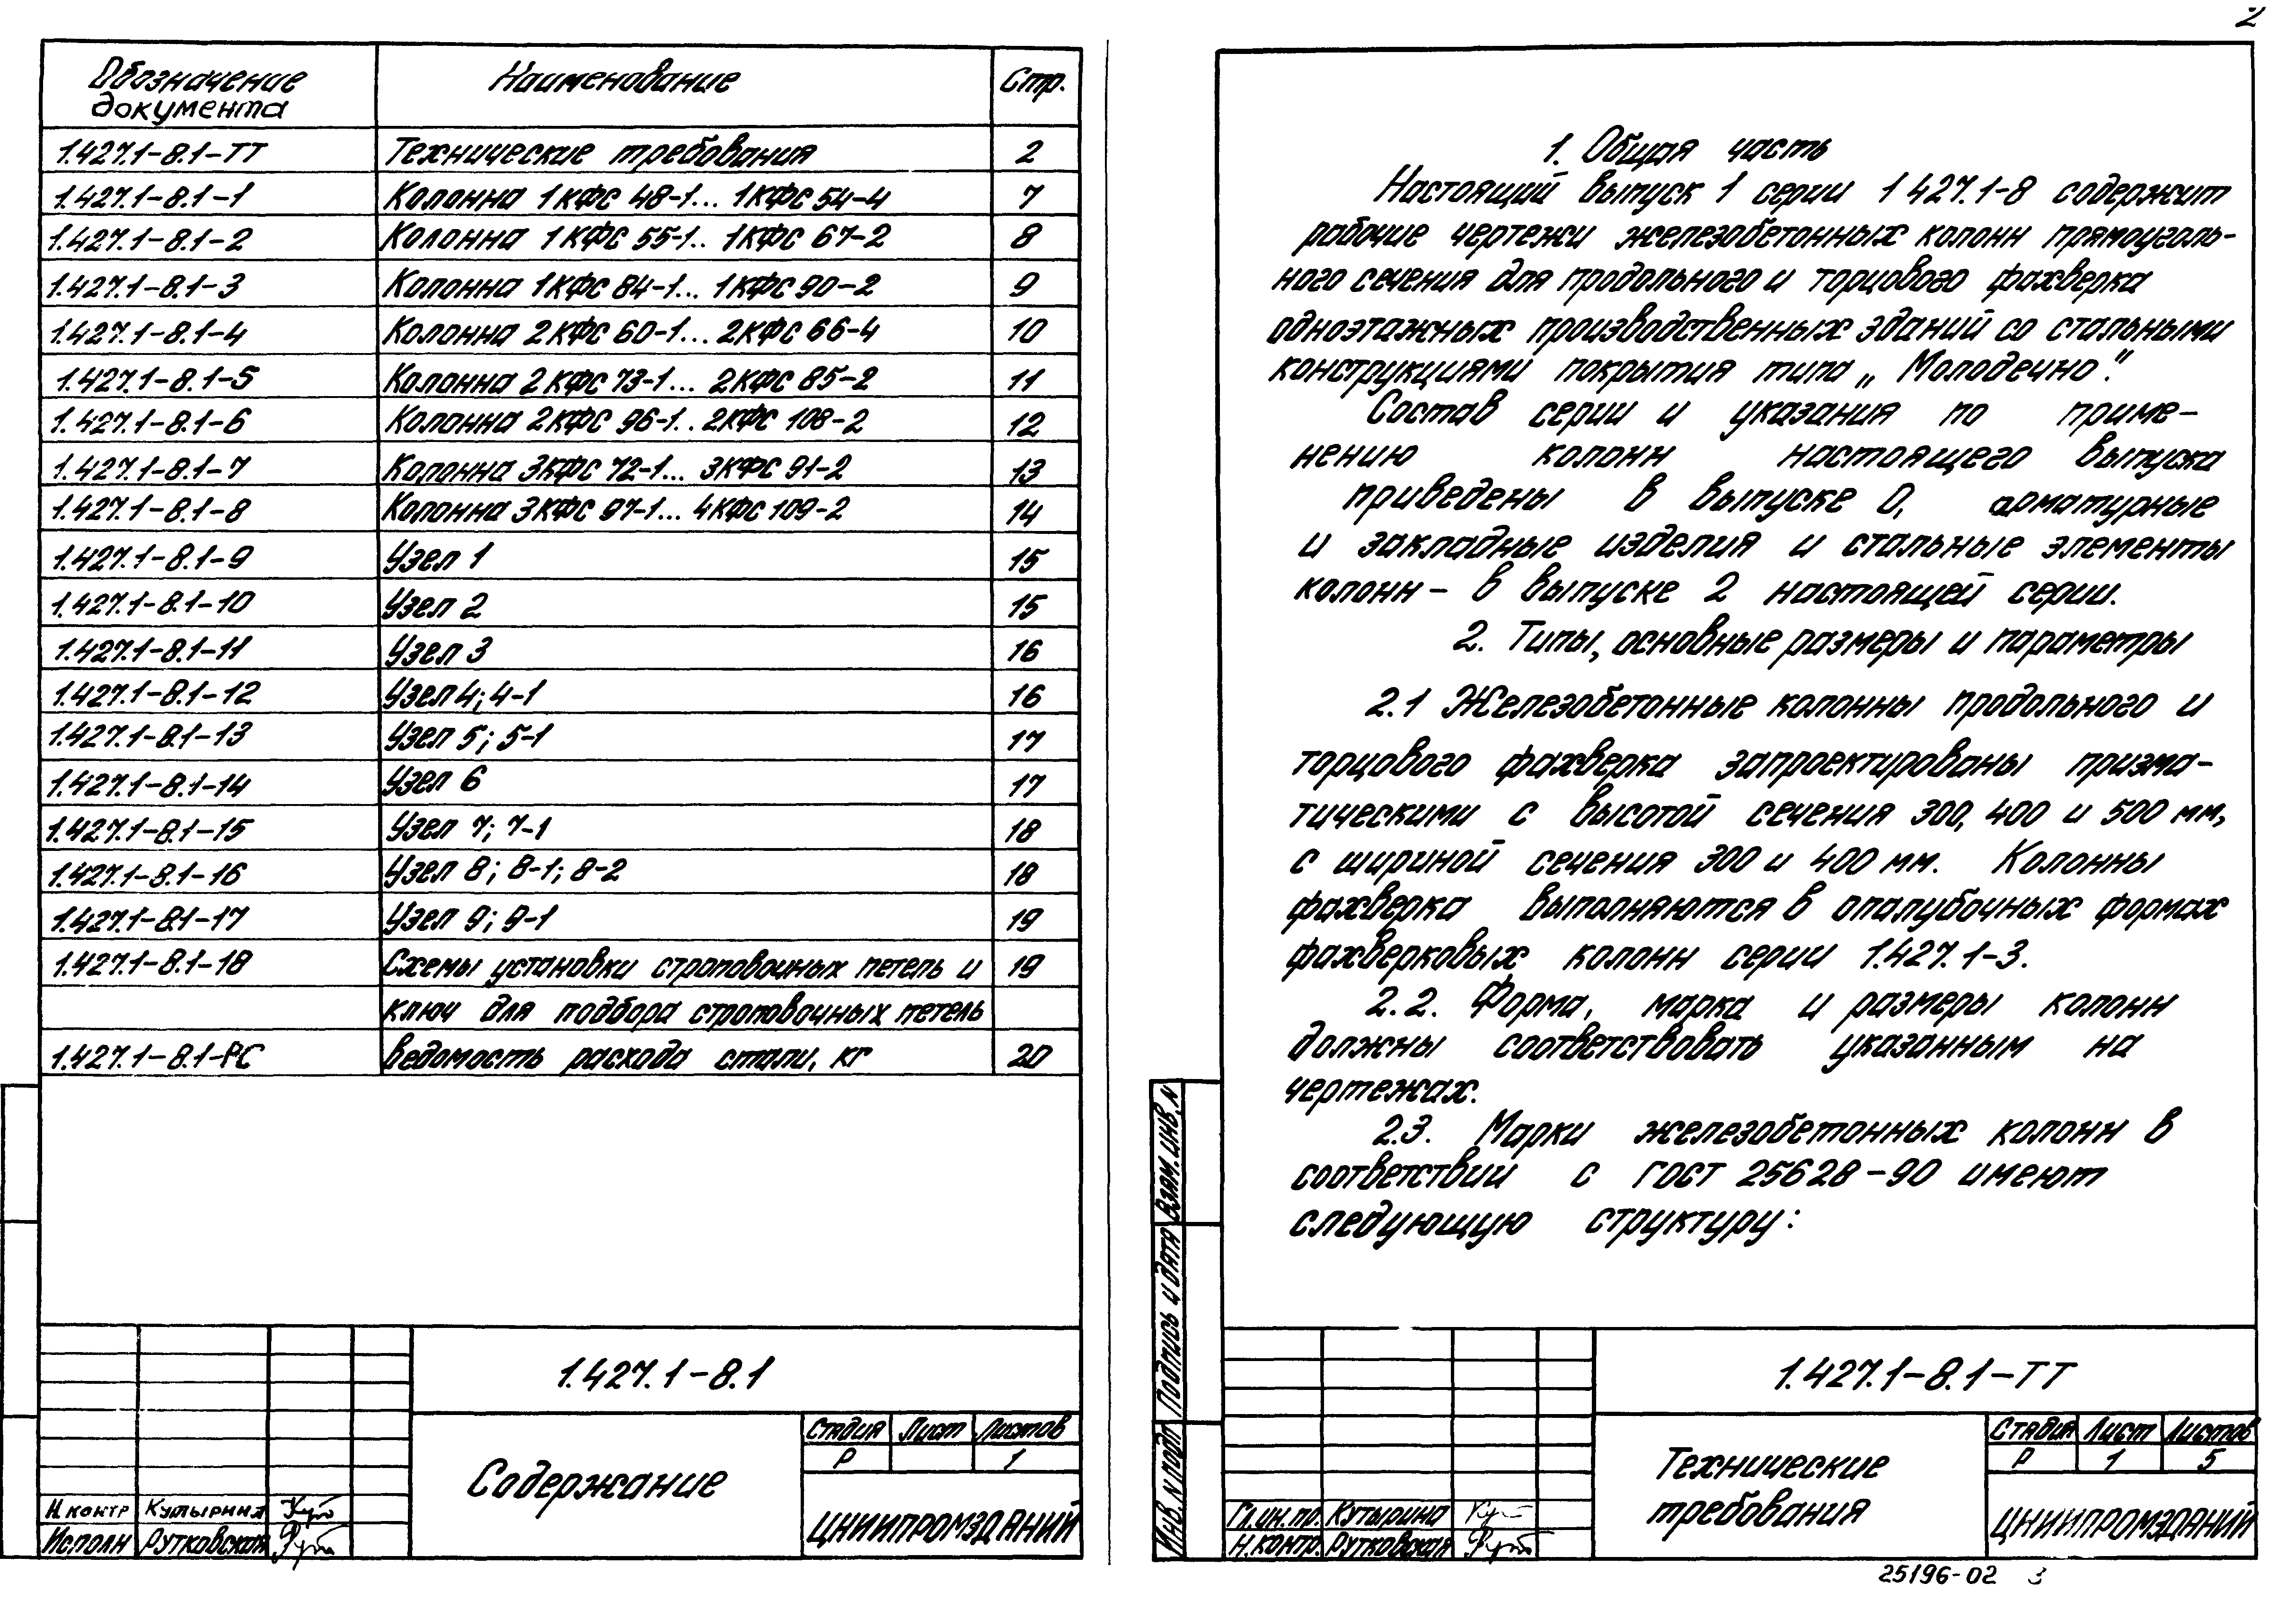 Обозначение документа Наименование Стр.
1.427.1-8.1-ТТ Технические требования 2
1.427.1-8.1-1 Колонна 1КФС 48-1... 1КФС 54-4 7
1.427.1-8.1-2 Колонна 1КФС 55-1.. 1КФС 67-2 8
1.427.1-8.1-3 Колонна 1КФС 84-1... 1КФС 90-2 9
1.427.1-8.1-4 Колонна 2КФС 60-1... 2КФС 66-4 10
1.427.1-8.1-5 Колонна 2КФС 73-1... 2КФС 85-2 11
1.427.1-8.1-6 Колонна 2КФС 96-1.. 2КФС 108-2 12
1.427.1-8.1-7 Колонна 3КФС 72-1... 3КФС 91-2 13
1.427.1-8.1-8 Колонна 3КФС 97-1... 4КФС 109-2 14
1.427.1-8.1-9 Узел 1 15
1.427.1-8.1-10 Узел 2 15
1.427.1-8.1-11 Узел 3 16
1.427.1-8.1-12 Узел 4; 4-1 16
1.427.1-8.1-13 Узел 5; 5-1 17
1.427.1-8.1-14 Узел 6 17
1.427.1-8.1-15 Узел 7; 7-1 18
1.427.1-8.1-16 Узел 8; 8-1; 8-2 18
1.427.1-8.1-17 Узел 9; 9-1 19
1.427.1-8.1-18 Схемы установки строповочных петель и 19
ключ для подбора строповочных петель
1.427.1-8.1-РС Ведомость расхода стали, кг 20
1.427.1-8.1
Содержание
Стадия Лист Листов
Р 1
ЦНИИПРОМЗДАНИЙ
Н.контр Кутырина
Исполн Рутковская
2
1. Общая часть
Настоящий выпуск 1 серии 1 427.1-8 содержит
рабочие чертежи железобетонных колонн прямоуголь-
ного сечения для продольного и торцового фахверка
одноэтажных производственных зданий со стальными
конструкциями покрытия типа „Молодечно".
Состав серии и указания по приме-
нению колонн настоящего выпуска
приведены в выпуске 0, арматурные
и закладные изделия и стальные элементы
колонн - в выпуске 2 настоящей серии.
2. Типы, основные размеры и параметры
2.1 Железобетонные колонны продольного и
торцового фахверка запроектированы призма-
тическими с высотой сечения 300, 400 и 500 мм,
с шириной сечения 300 и 400 мм. Колонны
фахверка выполняются в опалубочных формах
фахверковых колонн серии 1.427.1-3.
2.2. Форма, марка и размеры колонн
должны соответствовать указанным на
чертежах.
2.3. Марки железобетонных колонн в
соответствии с ГОСТ 25628-90 имеют
следующую структуру:
Взам. инв. N
Подпись и дата
Инв. N подл
1.427.1-8.1-ТТ
Технические
требования
Стадия Лист Листов
Р 1 5
ЦНИИПРОМЗДАНИЙ
Гл.ин.пр. Кутырина
Н.контр. Рутковская
25196-02 3